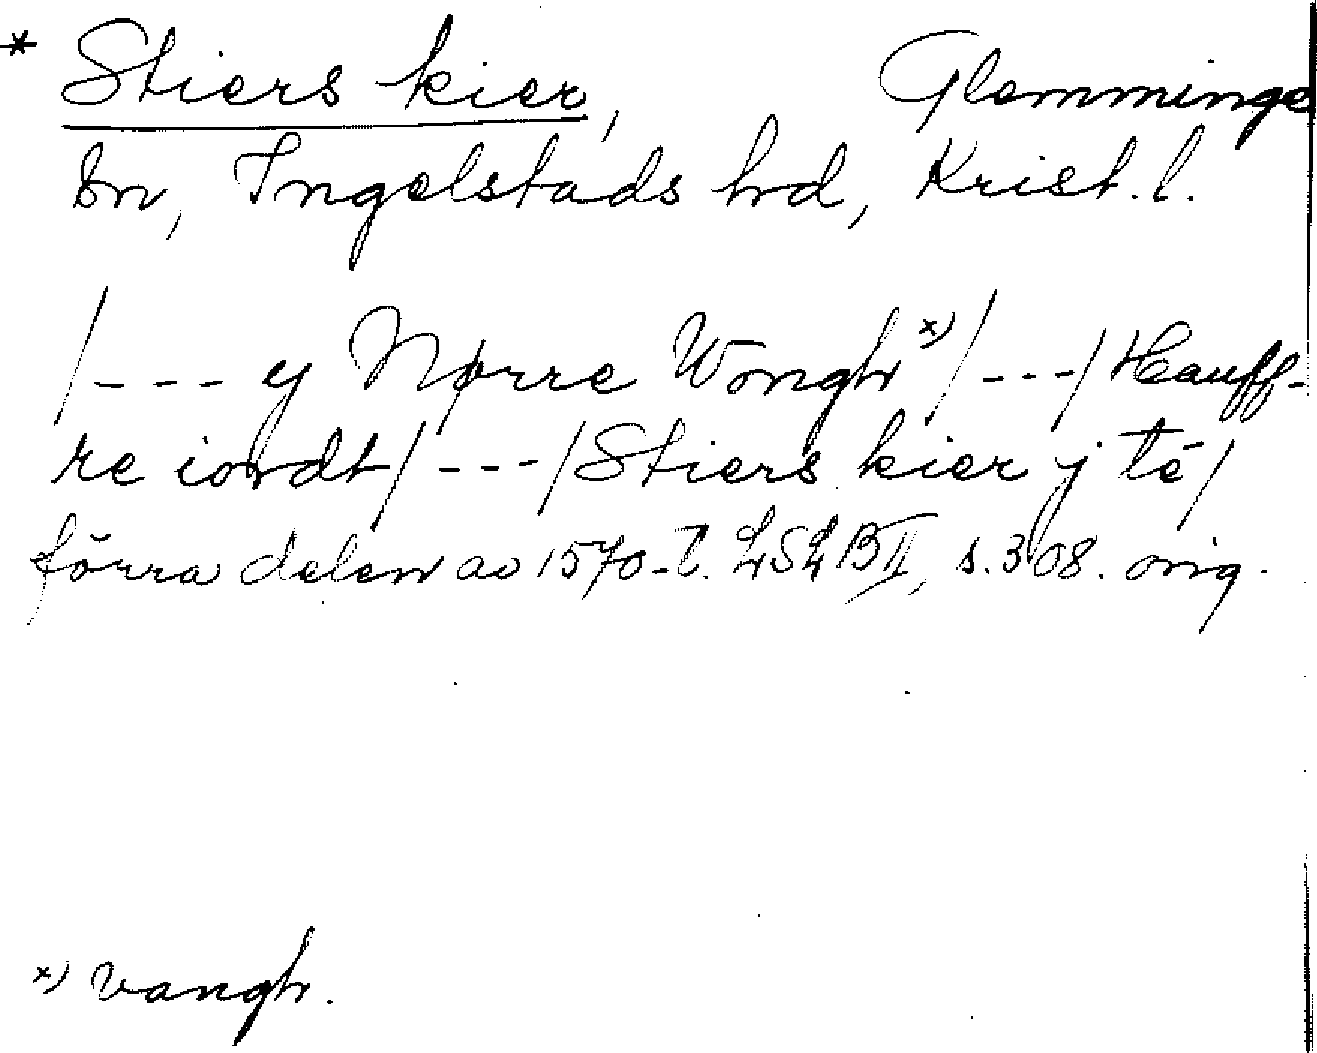 * Stiers kier, Glemminge
sn, Ingelstads hrd, Krist. l.
/--- y Nørre Wongh x) /---/ Hauff-
re iordt/---/Stiers kier j té/
förra delen av 1570-t. LSLB II, s. 308. orig.
x) vangh.